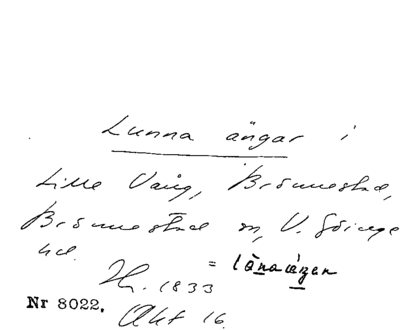 Lunna ängar i
Lille Vång, Brönnestad,
Brönnestad sn, V. Göinge
hd.
= lånaäzɐn
H. 1833
Nr 8022, Akt 16.